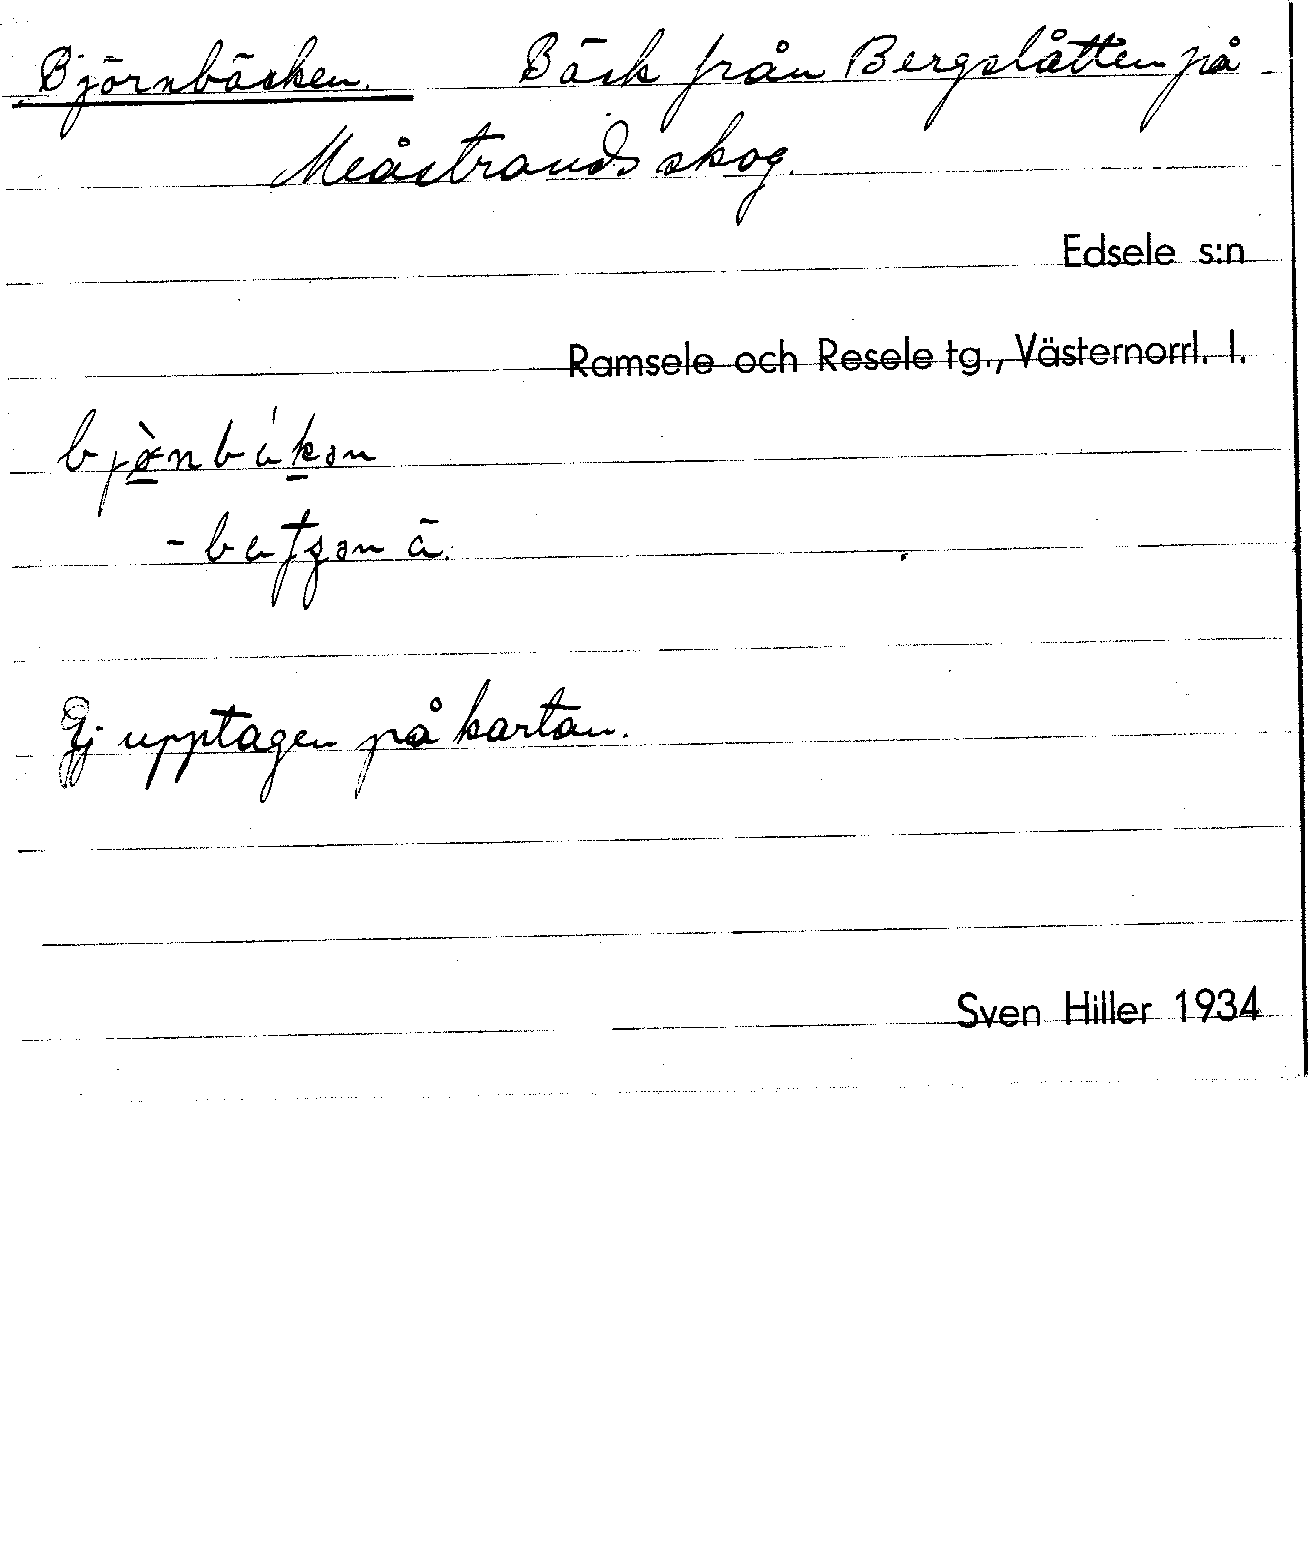 Björnbäcken. Bäck från Bergslåtten på
Meåstrands skog.
Edsele s:n
Ramsele och Resele tg., Västernorrl. l.
Ej upptagen på kartan.
Sven Hiller 1934